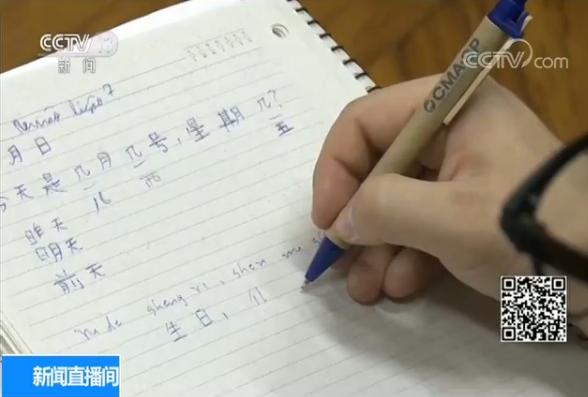 CCTV 13
新闻
CCTV.com
月 日
今天是几月几号,星期几?
五
昨天
明天
前天
ni de sheng ri, shen me
生日,
新闻直播间